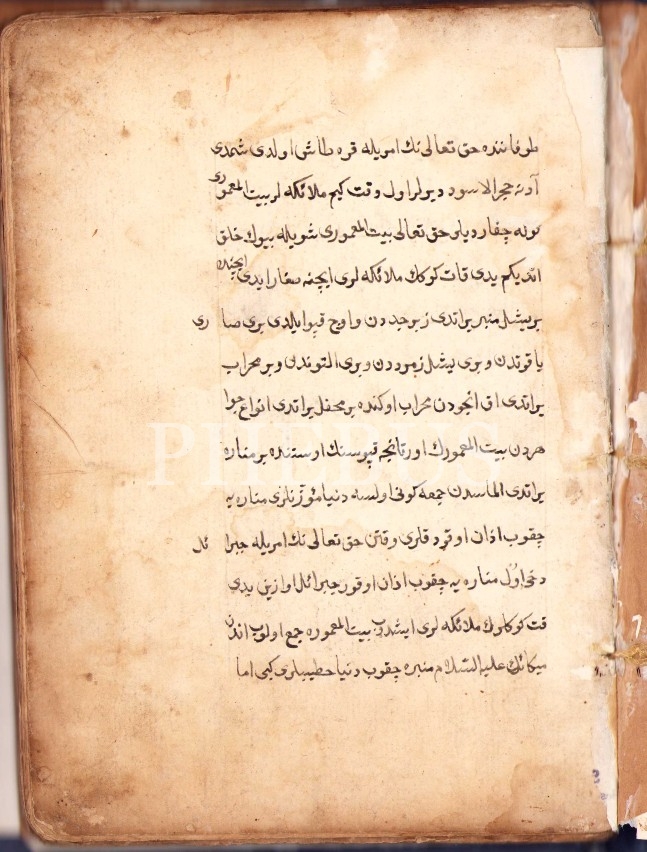 طوفاننده حق تعالی نك امریله قره طاش اولدی شمدی
آدنه حجر الاسود دیرلر اول وقت كیم ملائكه لر بیت المعموری
كوكه چقاردیلر حق تعالی بیت المعموری شویله بیوك خلق
اتدیكم یدی قات كوكك ملائكه لری ایچنه صغار ایدی ایچنده
بر یشل منبر یراتدی زبرجددن و اوچ قپو ایلدی بری صاری
یاقوتدن و بری یشل زمرددن و بری التوندن و بر محراب
یراتدی اق انجودن محراب اوكنده بر محفل یراتدی انواع جوا
هردن بیت المعمورك اورتانجه قپوسنك اوستنده بر مناره
یراتدی الماسدن جمعه كونی اولسه دنیا مؤذنلری مناره یه
چقوب اذان اوقردقلری وقتن حق تعالی نك امریله جبرائل
دخی اول مناره یه چقوب اذان اوقور جبرائل اوازین یدی
قت كوكلرك ملائكه لری ایشدوب بیت المعموره جمع اولوب اندن
میكائل علیه السلام منبره چقوب دنیا خطیبلری كبی اما
PHEBUS